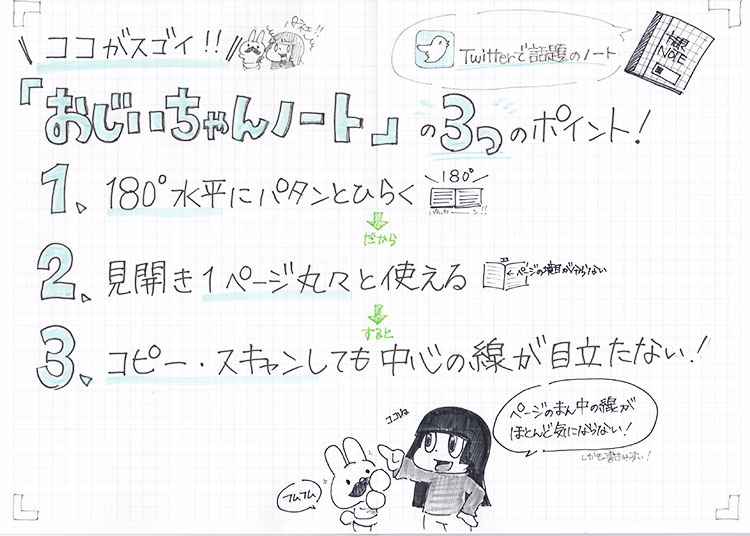 ココがスゴイ!!
Twitterで話題のノート
NOTE
「おじいちゃんノート」の3つのポイント!
1、180°水平にパタンとひらく
180°
だから
2、見開き1ページ丸々と使える
ページの境目が分らない
すると
3、コピー・スキャンしても中心の線が目立たない!
ページのまん中の線が
ほとんど気にならない!
しかも書きやすい!
ココはね
フムフム